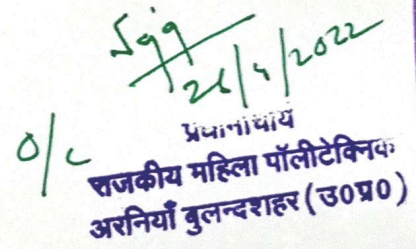 26/4/2022
O/C
प्रधानाचार्य
राजकीय महिला पॉलीटेक्निक
अरनियाँ बुलन्दशहर (उ०प्र०)